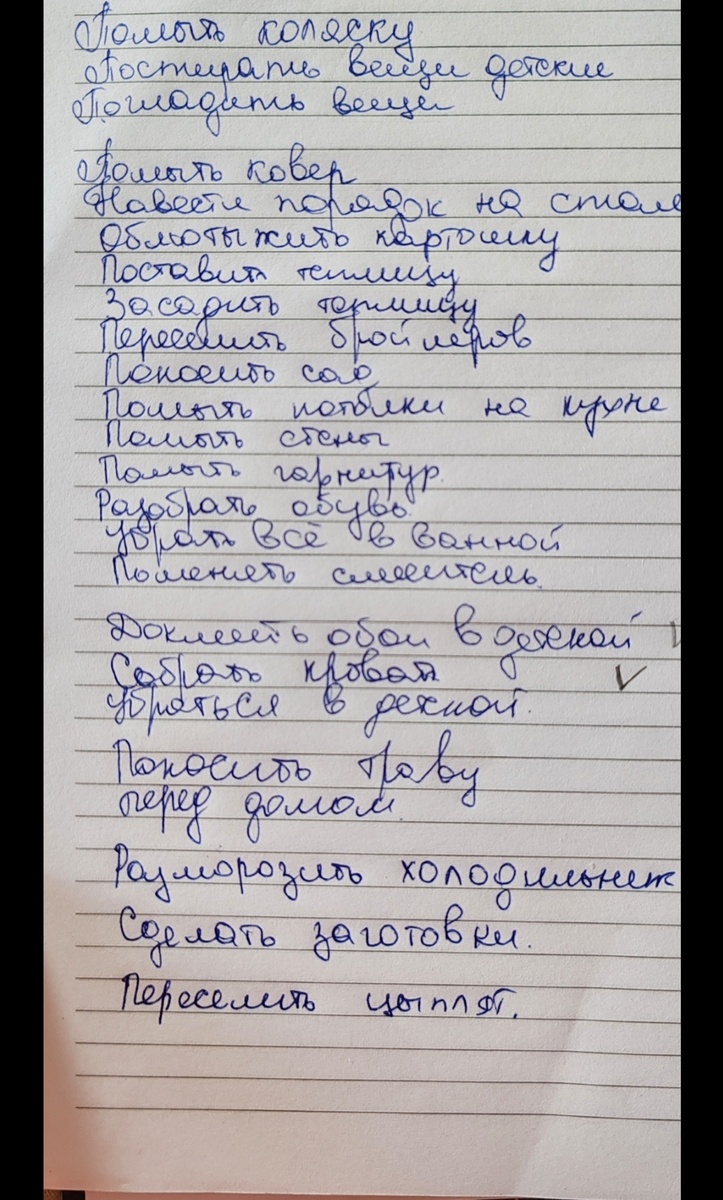 Помыть коляску
Постирать вещи детские
Погладить вещи
Помыть ковер
Навести порядок на столе
Облютыжить картошку
Поставить теплицу
Засадить теплицу
Переселить бройлеров
Покосить сад
Помыть потолки на кухне
Помыть стены
Помыть гарнитур
Разобрать обувь
Убрать всё в ванной
Поменять смеситель.
Доклеить обои в детской
Собрать кровать ✓
Убраться в деской.
Покосить траву
перед домом
Разморозить холодильник
Сделать заготовки.
Переселить цыплят.